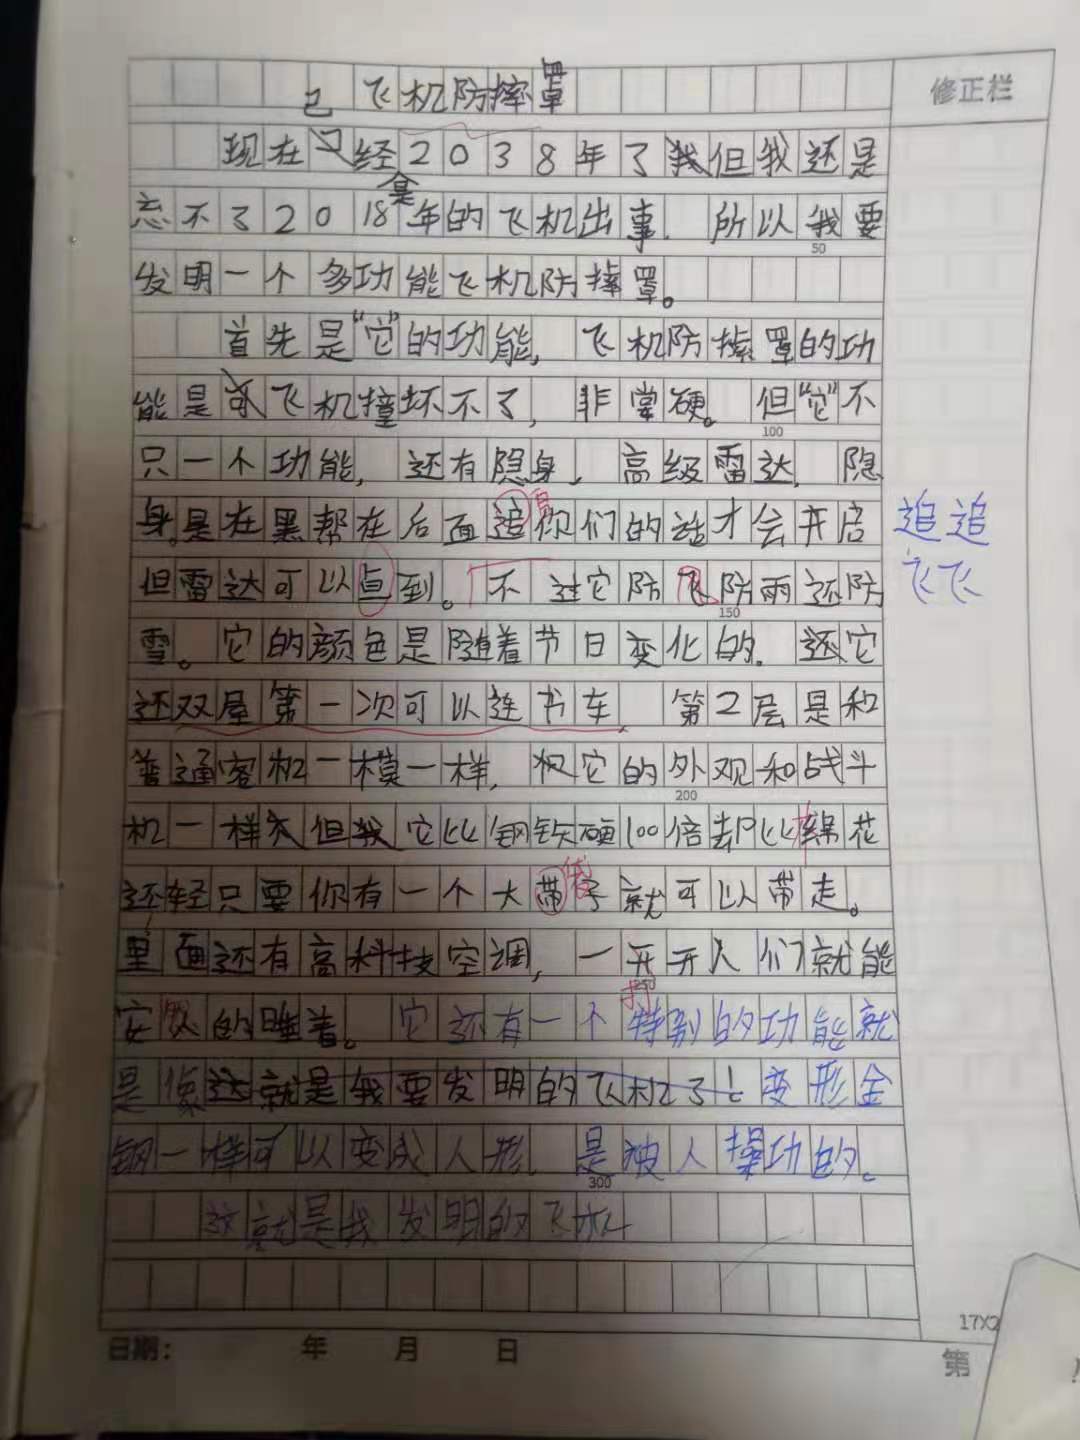 飞机防摔罩
修正栏
现在已经2038年了但我还是
忘不了2018年的飞机出事.所以我要
50
发明一个多功能飞机防摔罩。
首先是“它”的功能,飞机防摔罩的功
能是飞机撞坏不了,非常硬。但“它”不
100
只一个功能,还有隐身.高级雷达.隐
身是在黑帮在后面追你们的话才会开启
追追
但雷达可以直到。不过它防飞防雨还防
飞飞
150
雪。它的颜色是随着节日变化的.还它
还双层第一次可以连书车,第2层是和
普通客机一模一样,它的外观和战斗
200
机一样但它比钢铁硬100倍却比棉花
还轻只要你有一个大带子就可以带走。
袋
里面还有高科技空调,一开开人们就能
打
安的睡着。它还有一个特别的功能就
是像变形金
钢一样可以变成人形.是被人操功的。
300
这就是我发明的飞机
17X2
日期: 年 月 日
第